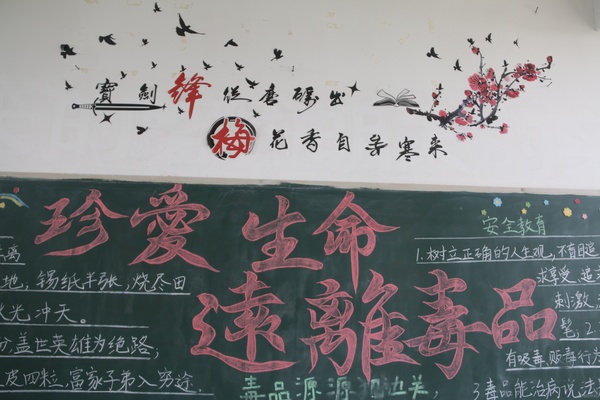 寶劍鋒從磨礪出
梅花香自苦寒来
珍愛生命
遠離毒品
离
地,锡纸半张,烧尽田
火光,冲天。
盖世英雄为绝路,
皮四粒,富家子弟入穷途.
毒品源源 边关,
安全教育
1.树立正确的人生观,不盲目
求享受,追
刺激,
髦,2.
有吸毒.贩毒行为
3毒品能治病说法